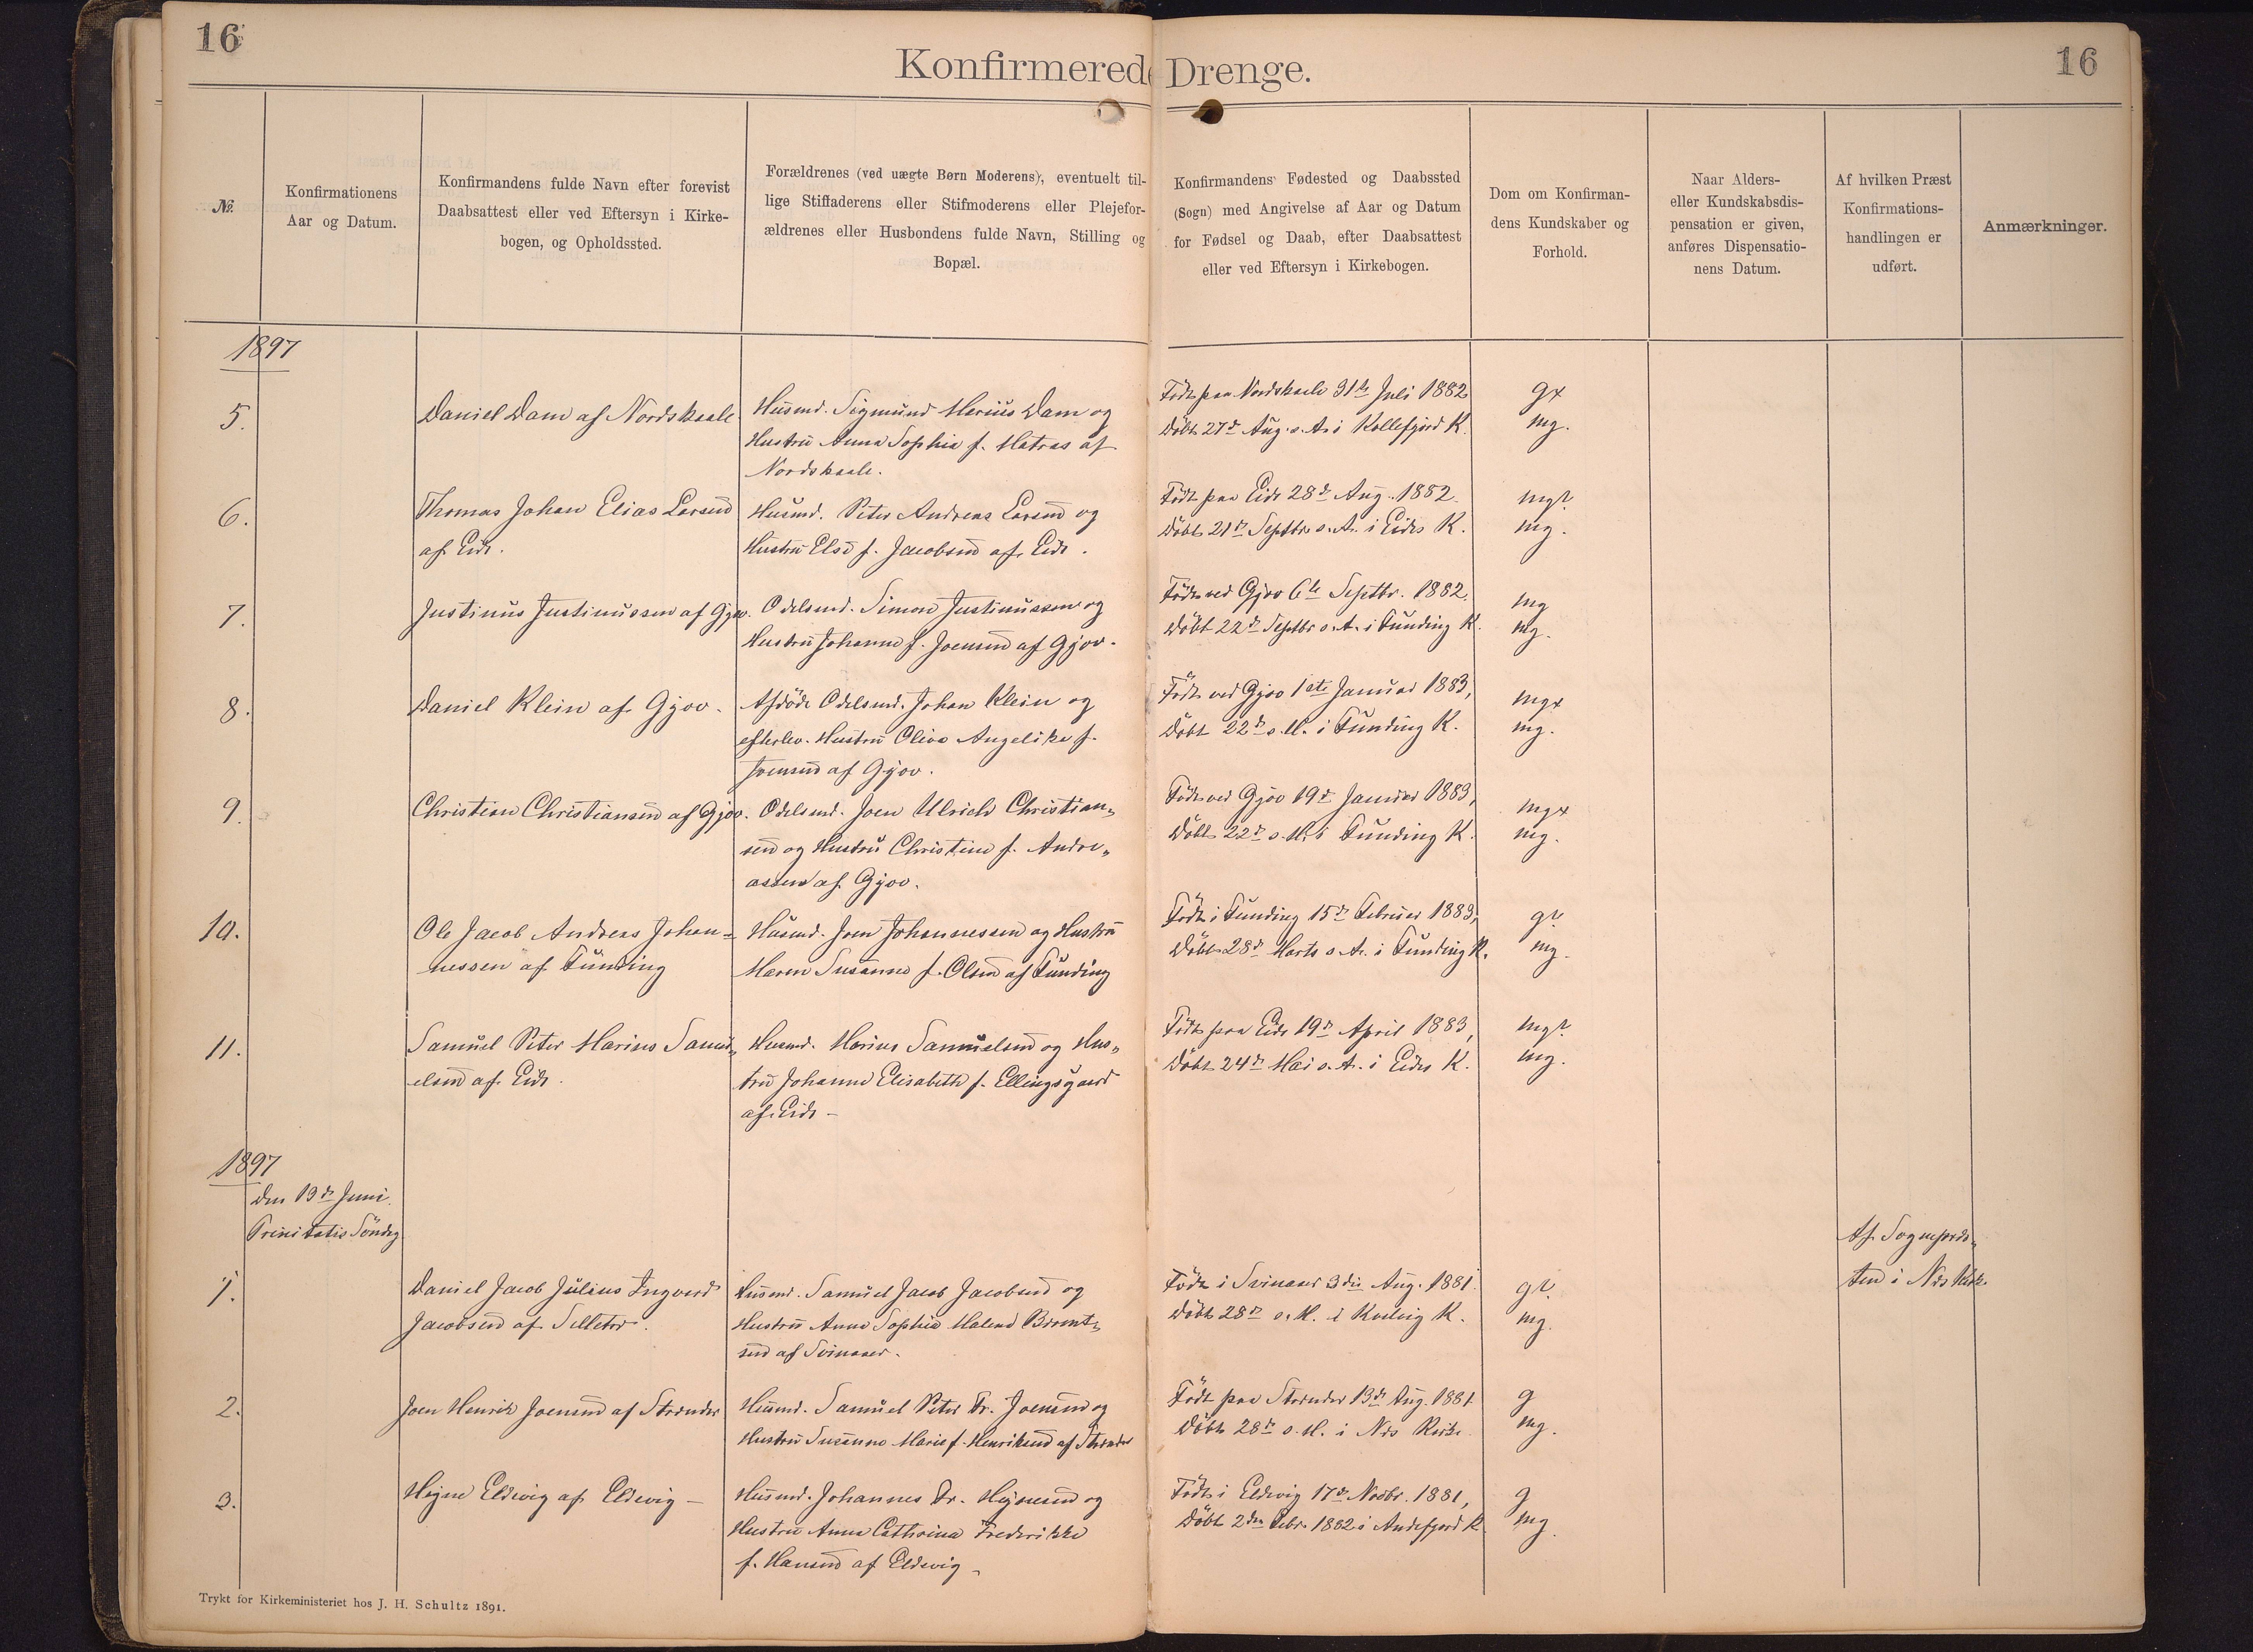 16
16
Konfirmerede Drenge.
№.
Konfirmationens
Aar og Datum.
Konfirmandens fulde Navn efter forevist
Daabsattest eller ved Eftersyn i Kirke-
bogen, og Opholdssted.
Forældrenes (ved uægte Børn Moderens), eventuelt til-
lige Stiffaderens eller Stifmoderens eller Plejefor-
ældrenes eller Husbondens fulde Navn, Stilling og
Bopæl.
Konfirmandens Fødested og Daabssted
(Sogn) med Angivelse af Aar og Datum
for Fødsel og Daab, efter Daabsattest
eller ved Eftersyn i Kirkebogen.
Dom om Konfirman-
dens Kundskaber og
Forhold.
Naar Alders-
eller Kundskabsdis-
pensation er given,
anføres Dispensatio-
nens Datum.
Af hvilken Præst
Konfirmations-
handlingen er
udført.
Anmærkninger.
1897
5.
Daniel Dam af Nordskaale
Husmd. Sigmund Marius Dam og
Hustru Anna Sophia f. Matras af
Nordskaale.
Födt paa Nordskaale 31te Juli 1882
Döbt 27de Aug. s. A. i Kollefjord K.
gx
mg.
6.
Thomas Johan Elias Larsen
af Eide.
Husmd. Peter Andreas Larsen og
Hustru Else f. Jacobsen af Eide.
Födt paa Eide 28de Aug. 1882.
Döbt 21de Septbr. s. A. i Eides K.
mg?
mg.
7.
Justinus Justinussen af Gjov.
Odelsmd. Simon Justinussen og
Hustru Johanne f. Joensen af Gjov.
Födt ved Gjov 6te Septbr. 1882.
Döbt 22de Septbr s. A. i Funding K.
mg
mg.
8.
Daniel Klein af Gjov.
Afdöde Odelsmd. Johan Klein og
efterlev. Hustru Oliva Angelika f.
Joensen af Gjov.
Födt ved Gjov 1ste Januar 1883,
Döbt 22de s. M. i Funding K.
mgx
mg.
9.
Christian Christiansen af Gjov.
Odelsmd. Joen Ulrich Christian„
sen og Hustru Christine f. Andre„
assen af Gjov.
Födt ved Gjov 19de Januar 1883,
Döbt 22de s. M. i Funding K.
mgx
mg.
10.
Ole Jacob Andreas Johan=
nessen af Funding
Husmd. Joen Johannessen og Hustru
Maren Susanne f. Olsen af Funding
Födt i Funding 15de Februar 1883,
Döbt 28de Marts s. A. i Funding K.
g?
mg.
11.
Samuel Peter Marius Samu„
elsen af Eide.
Husmd. Marius Samuelsen og Hus„
tru Johanne Elisabeth f. Ellingsgaard
af Eide -
Födt paa Eide 19de April 1883,
Döbt 24de Mai s. A. i Eides K.
mg?
mg.
1897
Den 13de Juni.
Trinitatis Söndag
Af Sognepræs„
ten i Næs Kirke.
1.
Daniel Jacob Julius Ingvard
Jacobsen af Selletræ.
Husmd. Samuel Jacob Jacobsen og
Hustru Anna Sophia Malene
af Svinaaer.
Födt i Svinaaer 3die Aug. 1881.
Döbt 28de s. M. i Kvilvig K.
g?
mg.
2.
Joen Henrik Joensen af Strænder
Husmd. Samuel Peter Fr. Joensen og
Hustru Susanne Marie f. Henriksen af Strænder
Födt paa Strænder 13de Aug. 1881
Döbt 28de s. M. i Næs Kirke
g
mg.
3.
Högne Eldevig af Eldevig -
Husmd. Johannes Fr. Högnesen og
Hustru Anna Cathrina Frederikke
f. Hansen af Eldevig -
Födt i Eldevig 17de Novbr. 1881,
Döbt 2den Febr. 1882 i Andefjord K.
g
mg.
Trykt for Kirkeministeriet hos J. H. Schultz 1891.